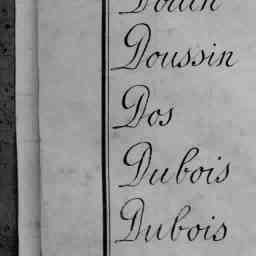 Doussin
Dos
Dubois
Dubois